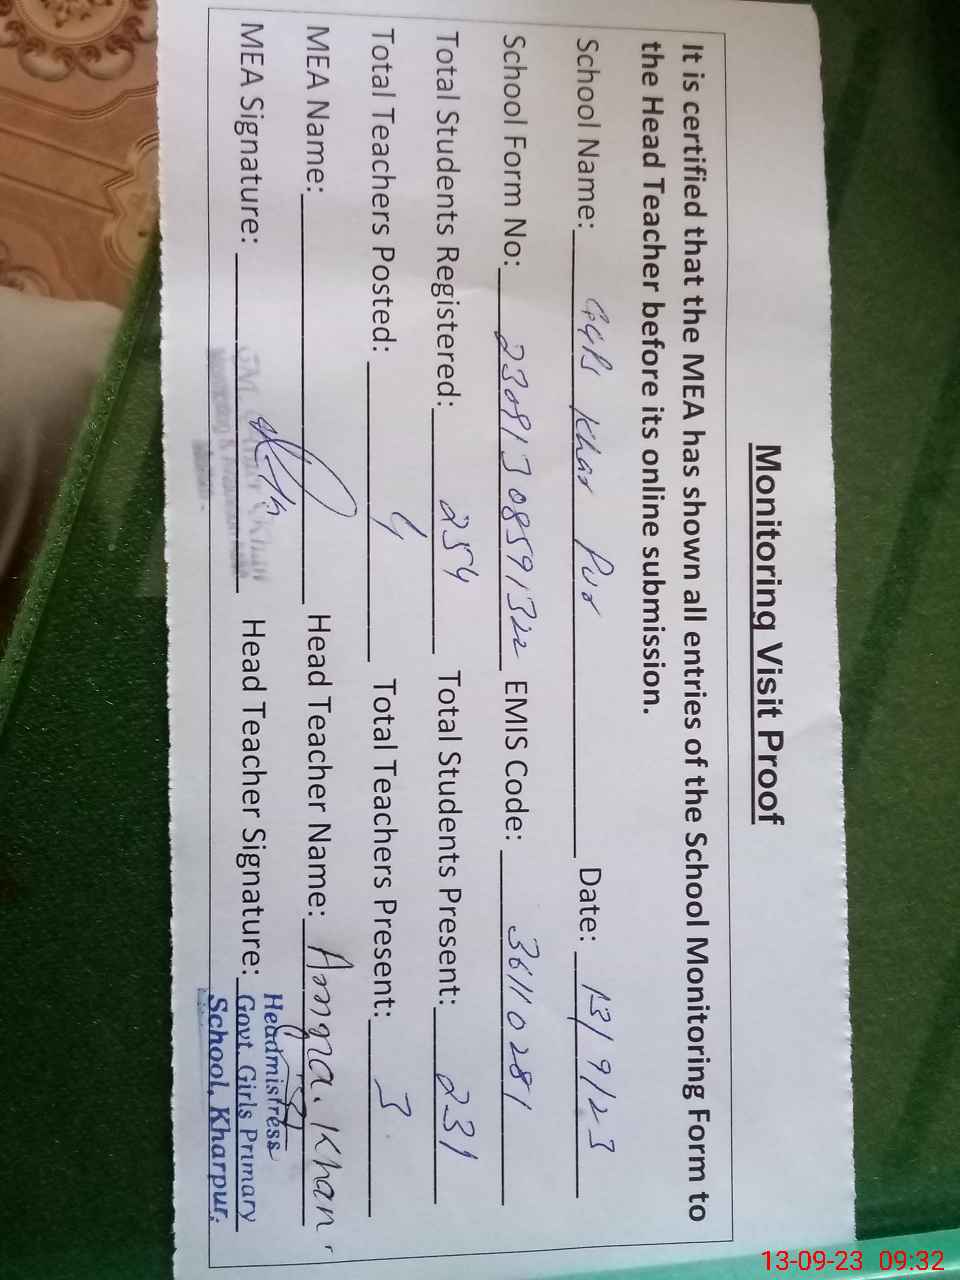 Monitoring Visit Proof
It is certified that the MEA has shown all entries of the School Monitoring Form to
the Head Teacher before its online submission.
School Name: GGPS Khar Pur Date: 13/9/23
School Form No: 23091308591322 EMIS Code: 36110281
Total Students Registered: 254 Total Students Present: 231
Total Teachers Posted: 4 Total Teachers Present: 3
MEA Name: Head Teacher Name: Amna Khan
MEA Signature: Head Teacher Signature:
Headmistress
Govt. Girls Primary
School, Kharpur.
13-09-23 09:32